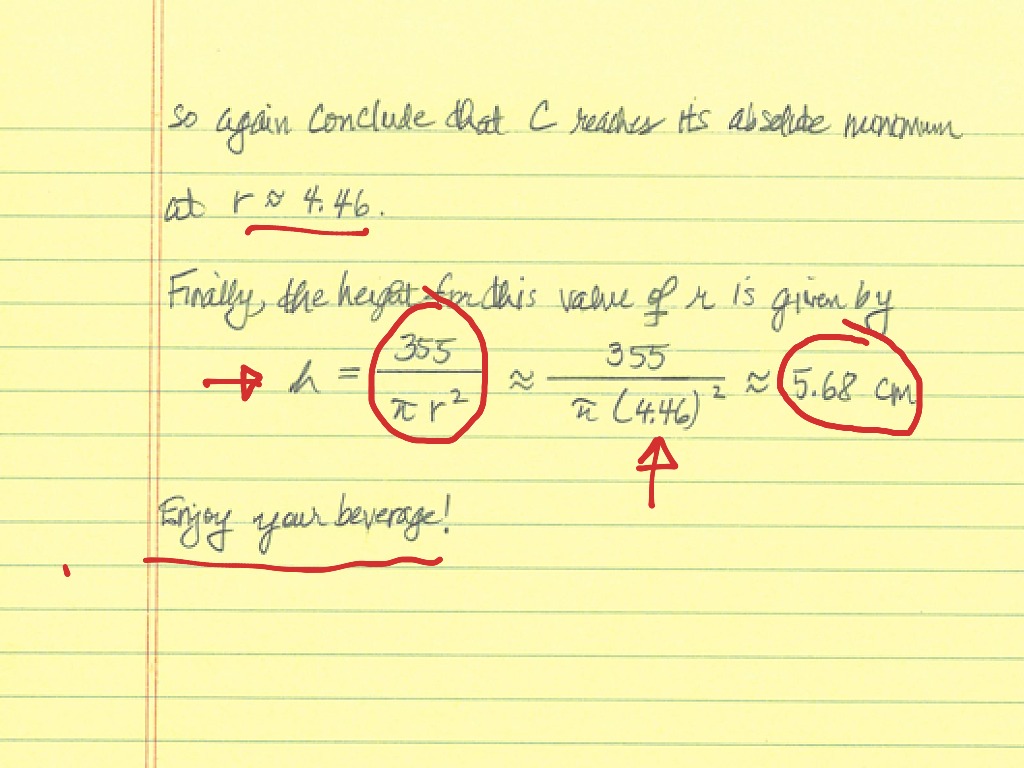 so again conclude that C reaches its absolute minimum
at r ≈ 4.46.
Finally, the height for this value of r is given by
h = 355 / π r² ≈ 355 / π (4.46)² ≈ 5.68 cm
Enjoy your beverage!